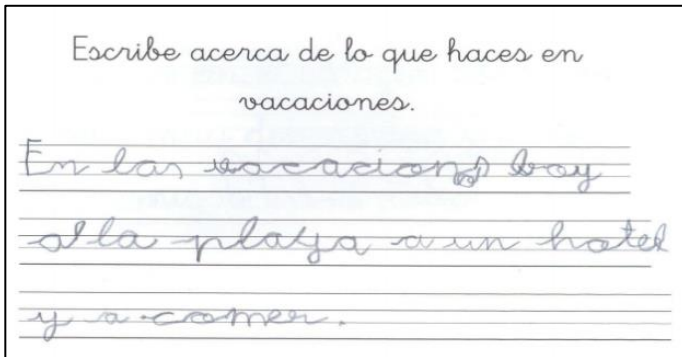 Escribe acerca de lo que haces en
vacaciones.
En las vacaciones boy
a la playa a un hotel
y a comer.